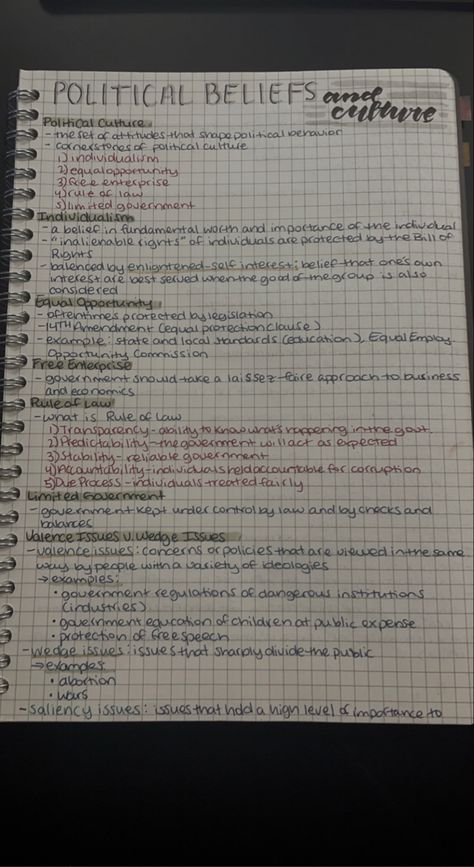 POLITICAL BELIEFS and culture
Political Culture
- the set of attitudes that shape political behavior
- cornerstones of political culture
1) individualism
2) equal opportunity
3) free enterprise
4) rule of law
5) limited government
Individualism
- a belief in fundamental worth and importance of the individual
- "inalienable rights" of individuals are protected by the Bill of
Rights
- balenced by enlightened-self interest; belief that one's own
interest are best served when the good of the group is also
considered
Equal Opportunity
- oftentimes protected by legislation
- 14TH Amendment (equal protection clause)
- example: state and local standards (education), Equal Employ.
Opportunity Commission
Free Enterprise
- government should take a laissez-faire approach to business
and economics
Rule of Law
- what is Rule of Law
1) Transparency - ability to know what's happening in the govt.
2) Predictability - the government will act as expected
3) Stability - reliable government
4) Accountability - individuals held accountable for corruption
5) Due Process - individuals treated fairly
Limited Government
- government kept under control by law and by checks and
balances
Valence Issues v. Wedge Issues
- valence issues: concerns or policies that are viewed in the same
way by people with a variety of ideologies
→ examples:
• government regulations of dangerous institutions
(industries)
• government education of children at public expense
• protection of free speech
- wedge issues: issues that sharply divide the public
→ examples
• abortion
• wars
- saliency issues: issues that hold a high level of importance to